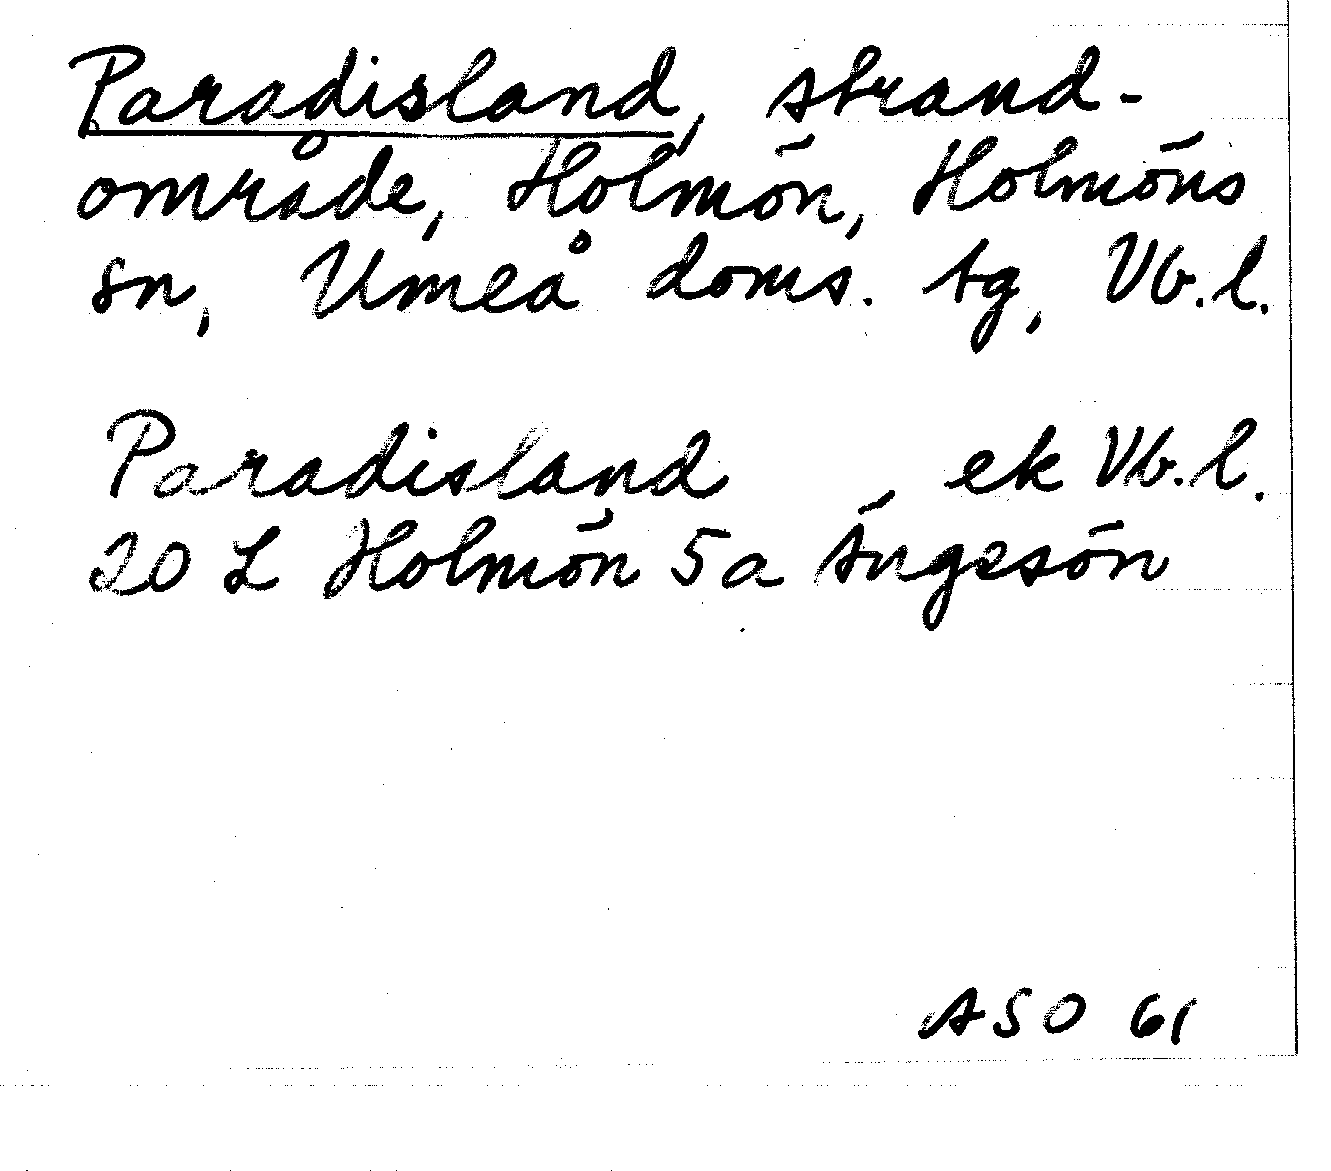 Paradisland, strand-
område, Holmön, Holmöns
sn, Umeå doms. tg, Vb.l.
Paradisland ek Vb.l.
20 L Holmön 5a Ängesön
ASO 61